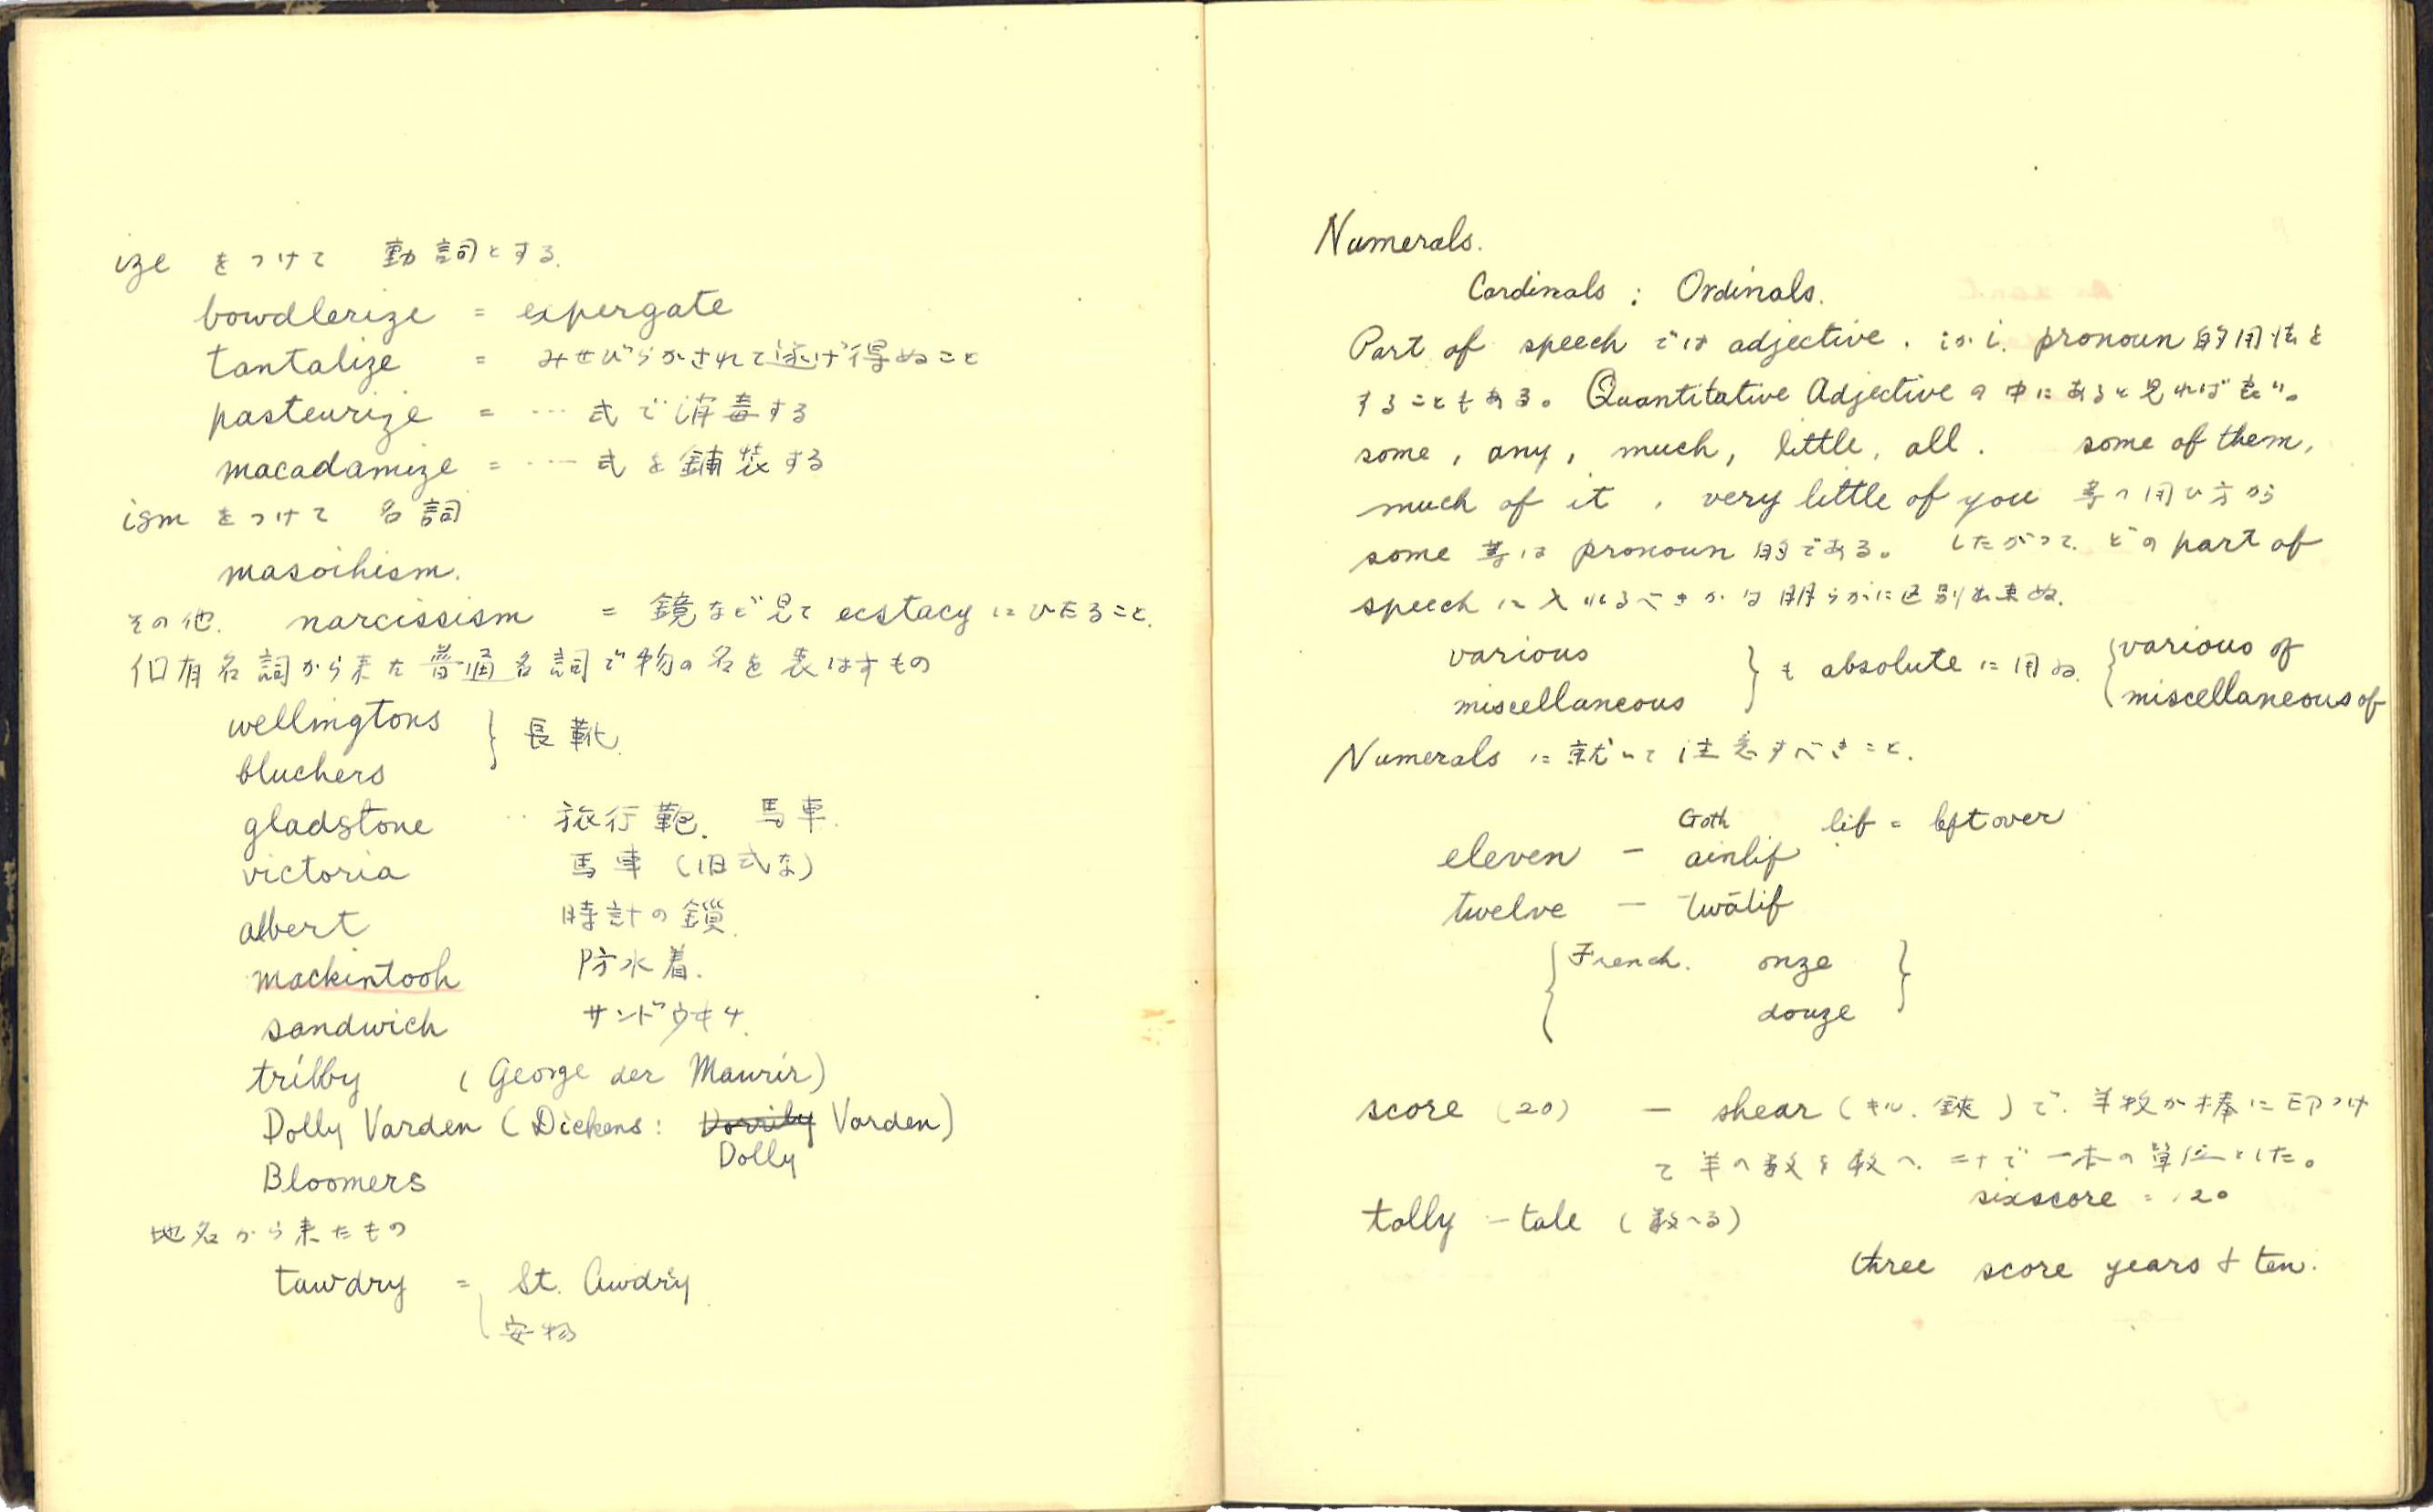 ize をつけて 動詞とする.
bowdlerize = expergate
tantalize = みせびらかされて遂げ得ぬこと
pasteurize = … 式で消毒する
macadamize = … 式を鋪装する
ism をつけて 名詞
masoihism.
その他. narcissism = 鏡など見て ecstacy にひたること.
固有名詞から来た普通名詞で物の名を表はすもの
wellingtons
bluchers } 長靴.
gladstone ‥ 旅行鞄. 馬車.
victoria 馬車 (旧式な)
albert 時計の鎖.
mackintosh 防水着.
sandwich サンドウヰチ.
trilby ( George der Maurir)
Dolly Varden ( Dickens : Varden)
Dolly
Bloomers
地名から来たもの
tawdry = St. Awdry
安物
Numerals.
Cardinals ; Ordinals.
Part of speech では adjective. pronoun 的用法を
することもある。 Quantitative Adjective の中にあると見ればよい。
some, any, much, little, all. some of them,
much of it, very little of you 等の用ひ方から
some 等は pronoun 的である。 したがって どの part of
speech に入れるべきかは明らかに区別出来ぬ.
various
miscellaneous } も absolute に用ゐ. { various of
miscellaneous of
Numerals に就いて注意すべきこと.
Goth lif = left over
eleven — ainlif
twelve — twālif
{ French. onze }
douze
score (20) — shear (キル. 鋏) で. 羊牧が棒に印つけ
て羊の数を数へ. 二十で一本の単位とした。
sixscore = 120
tally — tale (数へる)
three score years & ten.